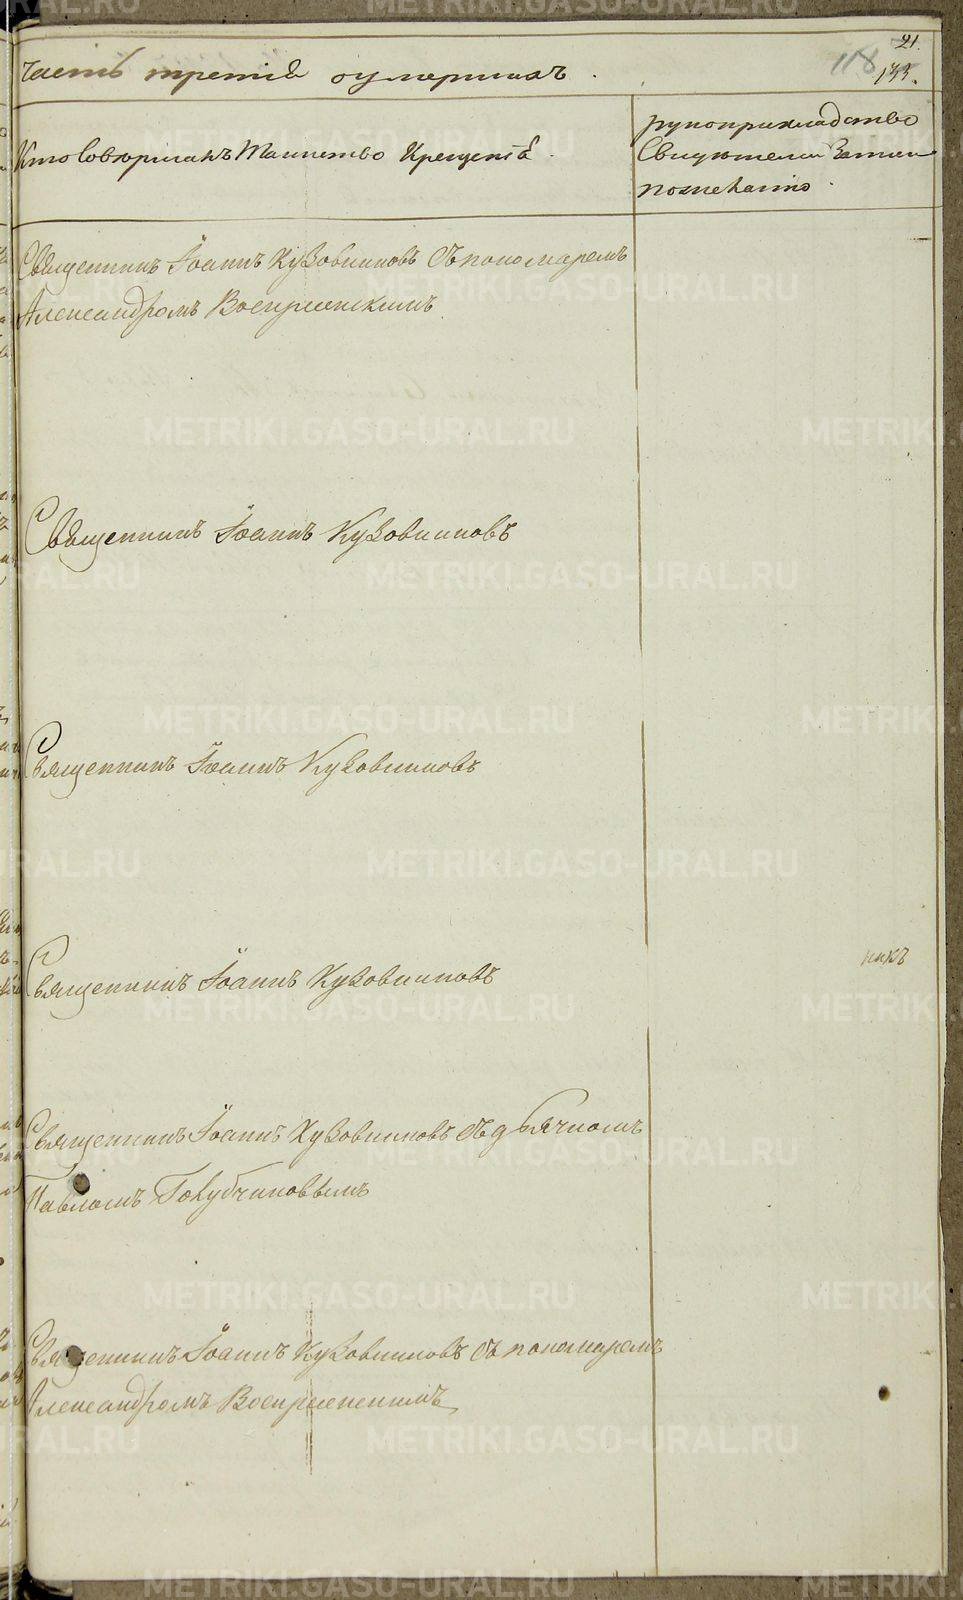 21.
118 133.
часть третія оумершихъ.
Кто Совершалъ Таинство Крещенія.
рукоприкладство
Свидетелей
Священникъ Іоаннъ Кузовниковъ съ пономаремъ
Александромъ Воскресенскимъ
Священникъ Іоаннъ Кузовниковъ
Священникъ Іоаннъ Кузовниковъ
Священникъ Іоаннъ Кузовниковъ
Священникъ Іоаннъ Кузовниковъ съ дьячкомъ
Павломъ Голубчиковымъ
Священникъ Іоаннъ Кузовниковъ съ пономаремъ
Александромъ Воскресенскимъ
METRIKI.GASO-URAL.RU